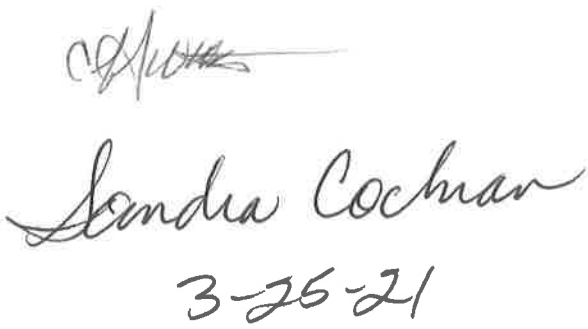 Sandra Cochran
3-25-21